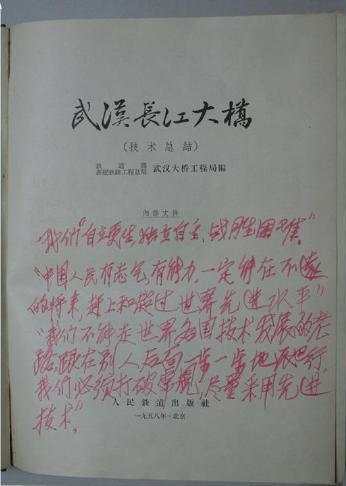 武漢長江大橋
(技术总結)
鉄道部
新建鉄路工程总局 武汉大桥工程局編
内部文件
我们"自立更生，独立自主，战胜困难"
"中国人民有志气，有能力，一定能在不远
的将来，赶上和超过世界先进水平"
"我们不能走世界各国技术发展的老
路，跟在别人后面一步一步地爬行，
我们必须打破常规，尽量采用先进
技术"。
人民鉄道出版社
一九五八年·北京